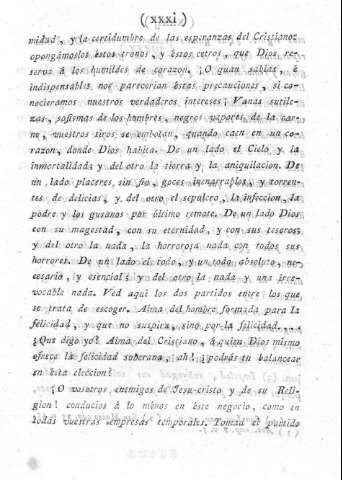 ( xxxi )
nidad, y la certidumbre de las esperanzas del Cristiano:
opongámoslos éstos tronos, y éstos cetros, que Dios re-
serva á los humildes de corazon. ¡O quán sabias, é
indispensables nos parecerian éstas precauciones, si co-
nocieramos nuestros verdaderos intereses! Vanas sutile-
zas, sofismas de los hombres, negros vapores de la car-
ne, vuestros tiros se embotan, quando caen en un co-
razon, donde Dios habita. De un lado el Cielo y la
inmortalidad; y del otro la tierra y la aniquilacion. De
un lado placeres sin fin, goces inenarrables, y torren-
tes de delicias, y del otro el sepulcro, la infeccion, la
podre y los gusanos por último remate. De un lado Dios
con su magestad, con su eternidad, y con sus tesoros;
y del otro la nada, la horrorosa nada con todos sus
horrores. De un lado el todo, y un todo absoluto, ne-
cesario, y esencial; y del otro la nada y una irre-
vocable nada. Ved aqui los dos partidos entre los que
se trata de escoger. Alma del hombre formada para la
felicidad, y que no suspira sino por la felicidad....
¿Que digo yo? Alma del Cristiano, á quien Dios mismo
ofrece la felicidad soberana, ah! ¿podrás en balancear
en ésta eleccion?
¡O vosotros enemigos de Jesu-cristo y de su Reli-
gion! conducíos á lo menos en este negocio, como en
todas vuestras empresas temporales. Tomad el partido